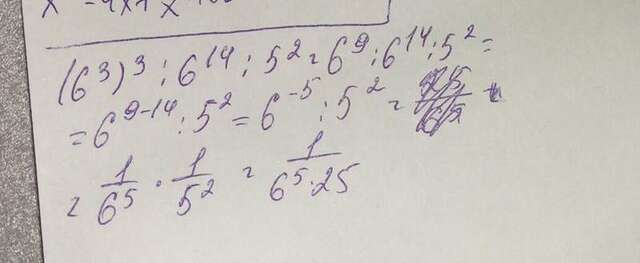 (6³)³ : 6¹⁴ : 5² = 6⁹ : 6¹⁴ : 5² =
= 6⁹⁻¹⁴ : 5² = 6⁻⁵ : 5² =
= 1/6⁵ · 1/5² = 1/(6⁵·25)